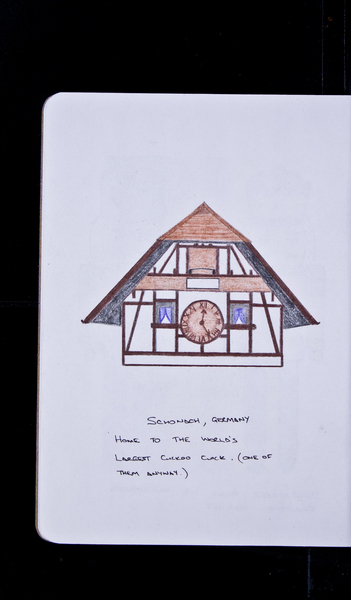 SCHONACH, GERMANY
HOME TO THE WORLD'S
LARGEST CUCKOO CLOCK. (ONE OF
THEM ANYWAY.)